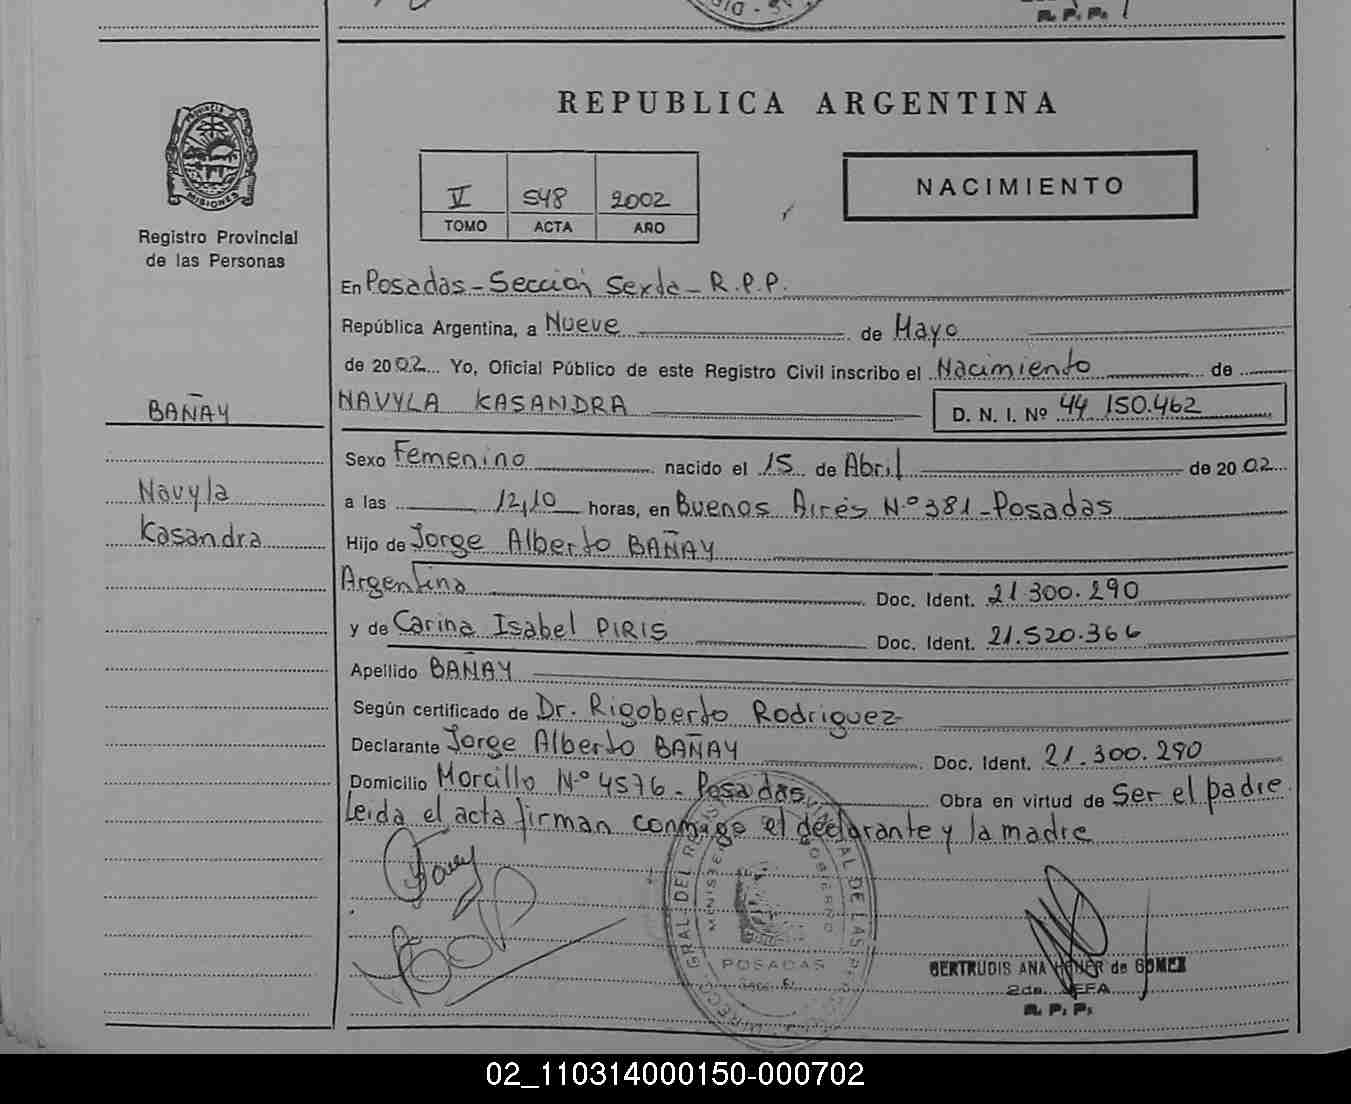 R. P. P.
REPUBLICA ARGENTINA
PROVINCIA
MISIONES
Registro Provincial
de las Personas
V 548 2002
TOMO ACTA AÑO
NACIMIENTO
En Posadas - Sección Sexta - R.P.P.
República Argentina, a Nueve de Mayo
de 2002 Yo, Oficial Público de este Registro Civil inscribo el Nacimiento de
NAVYLA KASANDRA D. N. I. Nº 44 150.462
BAÑAY
Navyla
Kasandra
Sexo Femenino nacido el 15 de Abril de 2002
a las 12,10 horas, en Buenos Aires Nº 381 - Posadas
Hijo de Jorge Alberto BAÑAY
Argentina Doc. Ident. 21.300.290
y de Carina Isabel PIRIS Doc. Ident. 21.520.366
Apellido BAÑAY
Según certificado de Dr. Rigoberto Rodriguez
Declarante Jorge Alberto BAÑAY Doc. Ident. 21.300.290
Domicilio Morcillo Nº 4576 - Posadas Obra en virtud de Ser el padre
Leida el acta firman conmigo el declarante y la madre
POSADAS
GERTRUDIS ANA de GOMEZ
2da. JEFA
R. P. P.
02_110314000150-000702